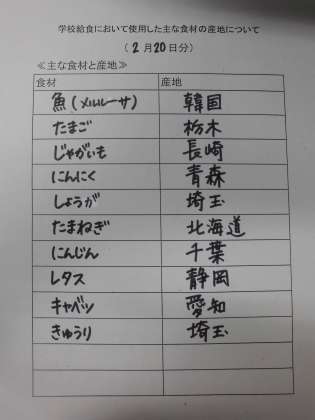 学校給食において使用した主な食材の産地について
(2月20日分)
≪主な食材と産地≫
食材 産地
魚(メルルーサ) 韓国
たまご 栃木
じゃがいも 長崎
にんにく 青森
しょうが 埼玉
たまねぎ 北海道
にんじん 千葉
レタス 静岡
キャベツ 愛知
きゅうり 埼玉